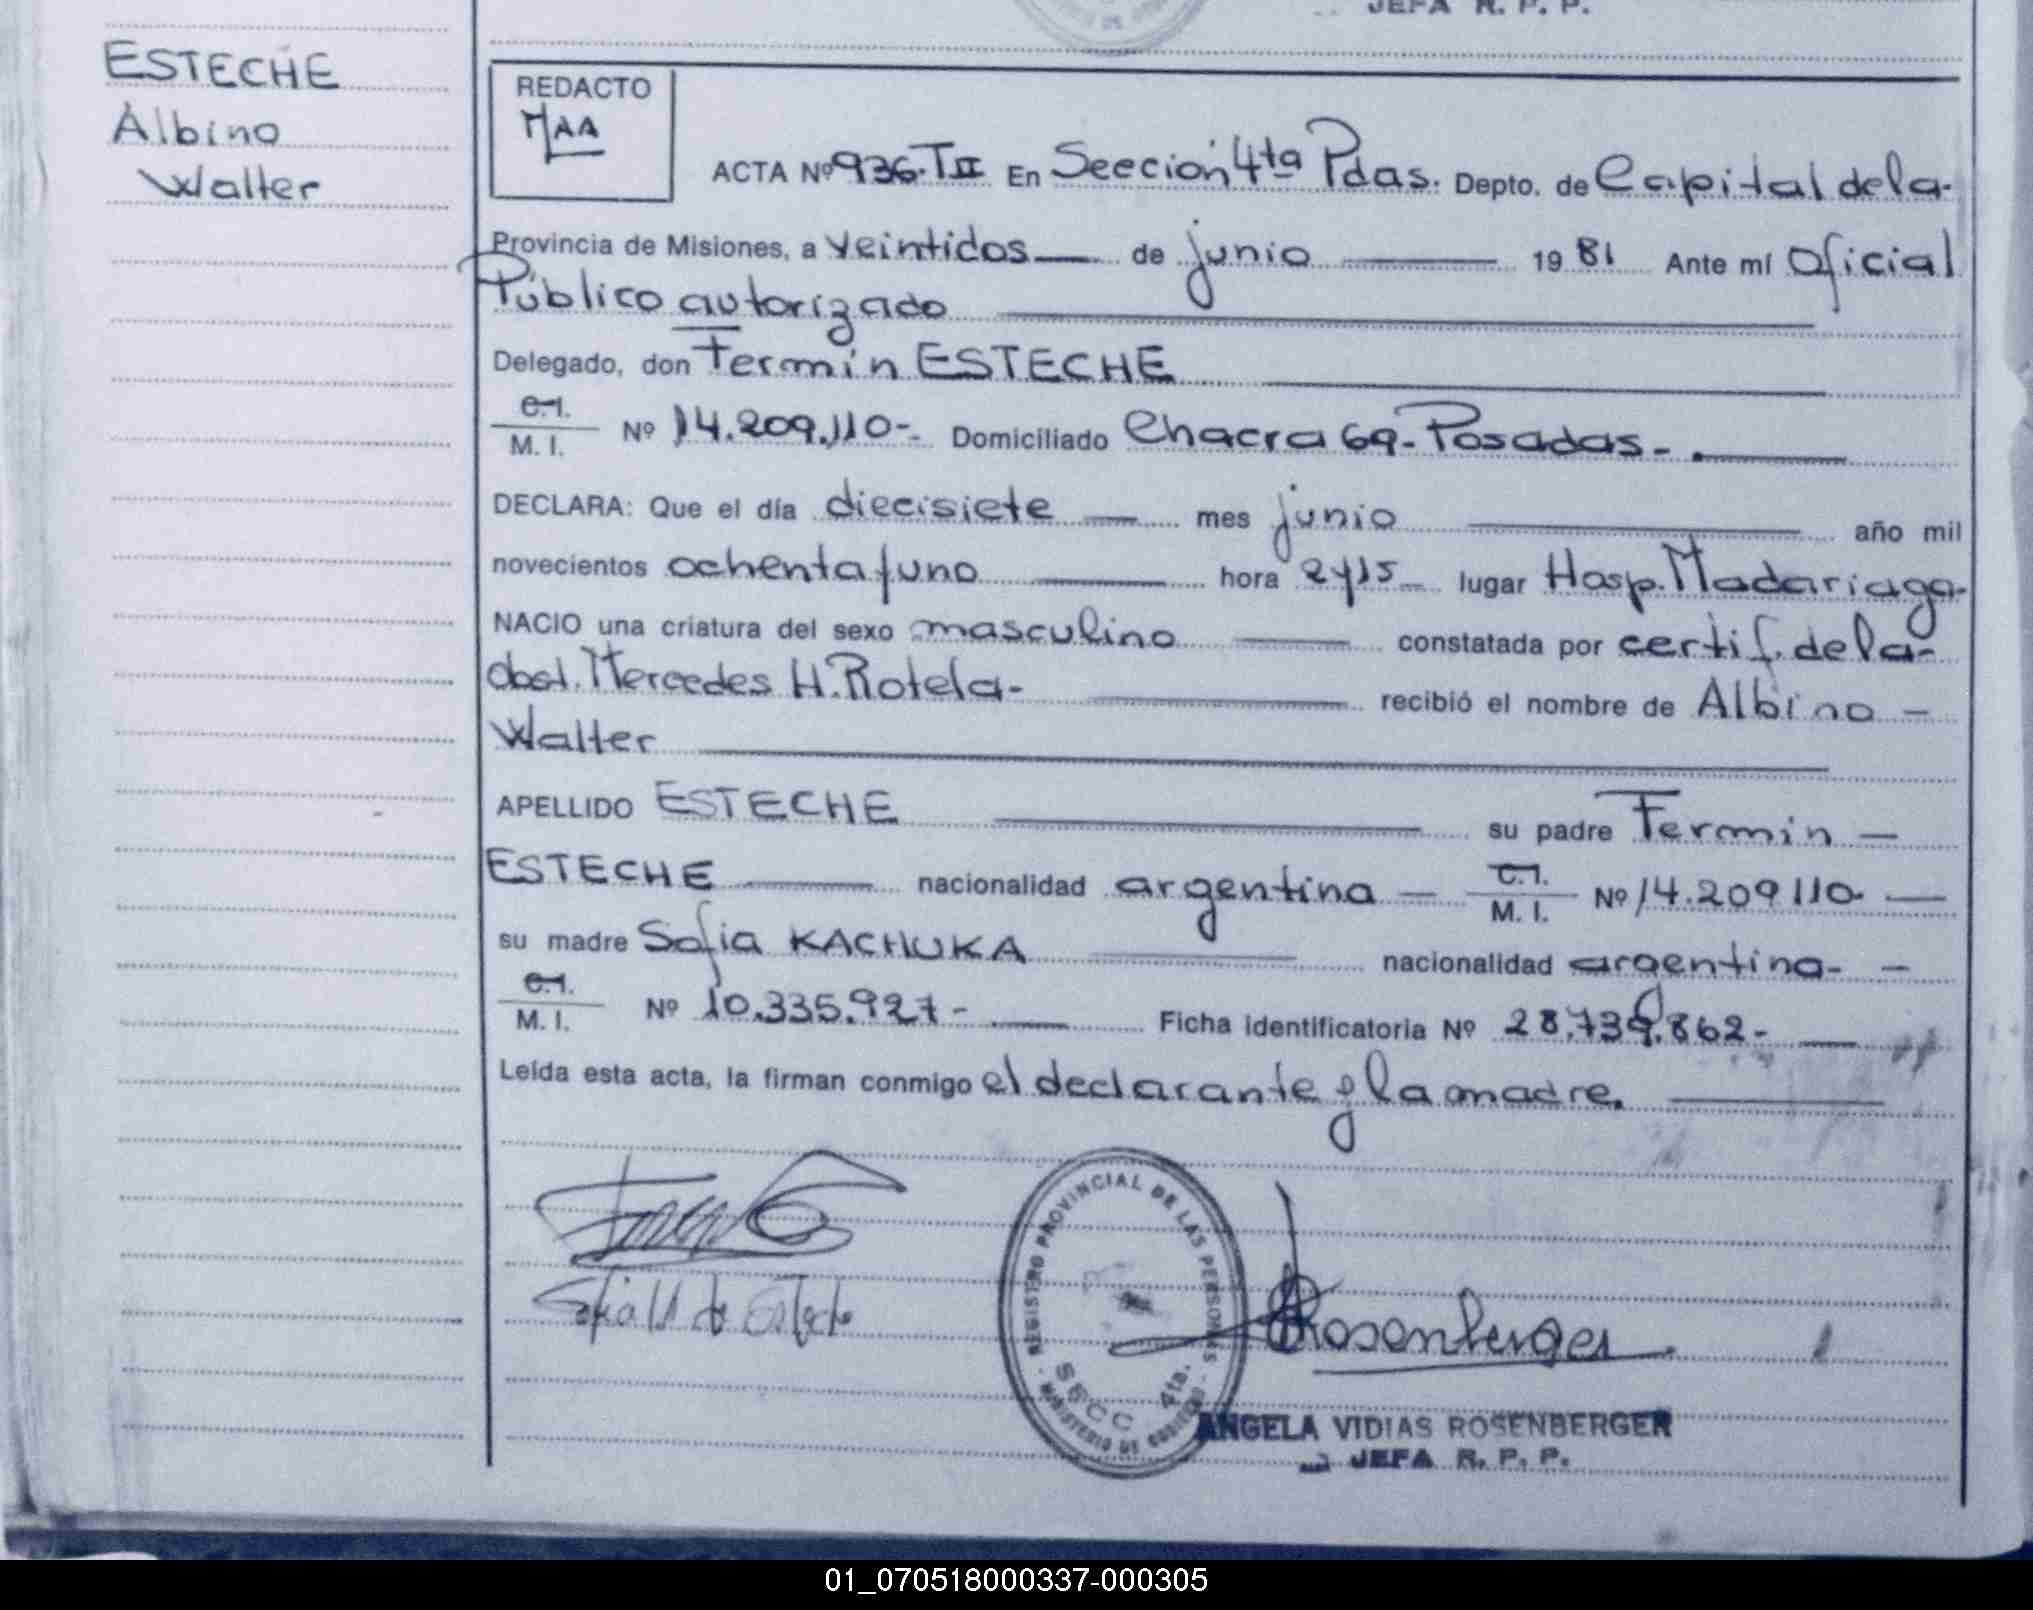 JEFA R. P. P.
ESTECHE
Albino
Walter
REDACTO
MAA
ACTA Nº 936-T II En Sección 4ta Pdas. Depto. de Capital de la-
Provincia de Misiones, a veintidos de junio 19 81 Ante mí Oficial
Público autorizado
Delegado, don Fermín ESTECHE
C.I.
M. I. Nº 14.209.110- Domiciliado Chacra 69-Posadas-.
DECLARA: Que el día diecisiete mes junio año mil
novecientos ochenta y uno hora 2y15 lugar Hosp. Madariaga-
NACIO una criatura del sexo masculino constatada por certif. de la-
obst. Mercedes H. Rotela- recibió el nombre de Albino -
Walter
APELLIDO ESTECHE su padre Fermín -
ESTECHE nacionalidad argentina - C.I.
M. I. Nº 14.209110-
su madre Sofia KACHUKA nacionalidad argentina- -
C.I.
M. I. Nº 10.335.927- Ficha identificatoria Nº 28.739.862-
Leída esta acta, la firman conmigo el declarante y la madre.
REGISTRO PROVINCIAL DE LAS PERSONAS
SECC 4ta.
MINISTERIO DE GOBIERNO
Rosenberger
ANGELA VIDIAS ROSENBERGER
JEFA R. P. P.
01_070518000337-000305